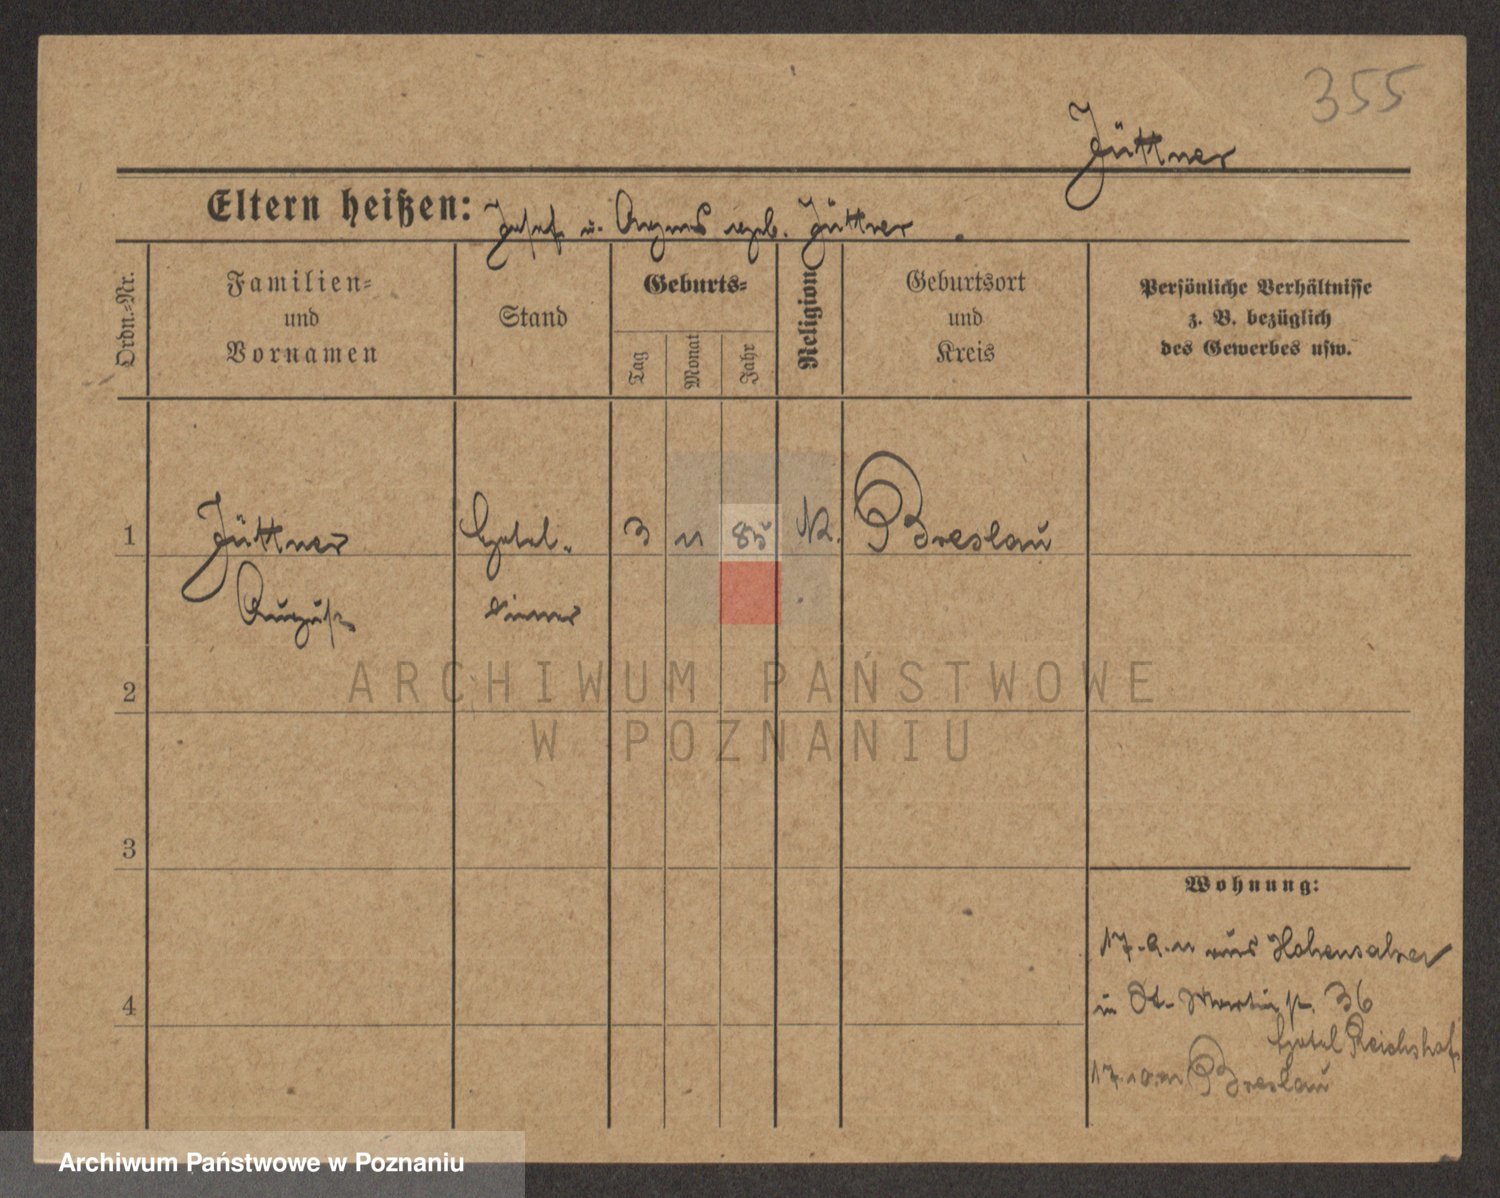 355
Jüttner
Eltern heißen: Josef u. Agnes geb. Jüttner
Ordn.=Nr.
Familien=
und
Vornamen
Stand
Geburts=
Tag
Monat
Jahr
Religion
Geburtsort
und
Kreis
Persönliche Verhältnisse
z. B. bezüglich
des Gewerbes usw.
1 Jüttner Hotel= 3 11 85 K. Breslau
August diener
2
3
4
Wohnung:
17.9.11 aus Hohensalza
in St. Martinstr. 36
Hotel Reichshof
17.10.11 Breslau
ARCHIWUM PAŃSTWOWE
W POZNANIU
Archiwum Państwowe w Poznaniu